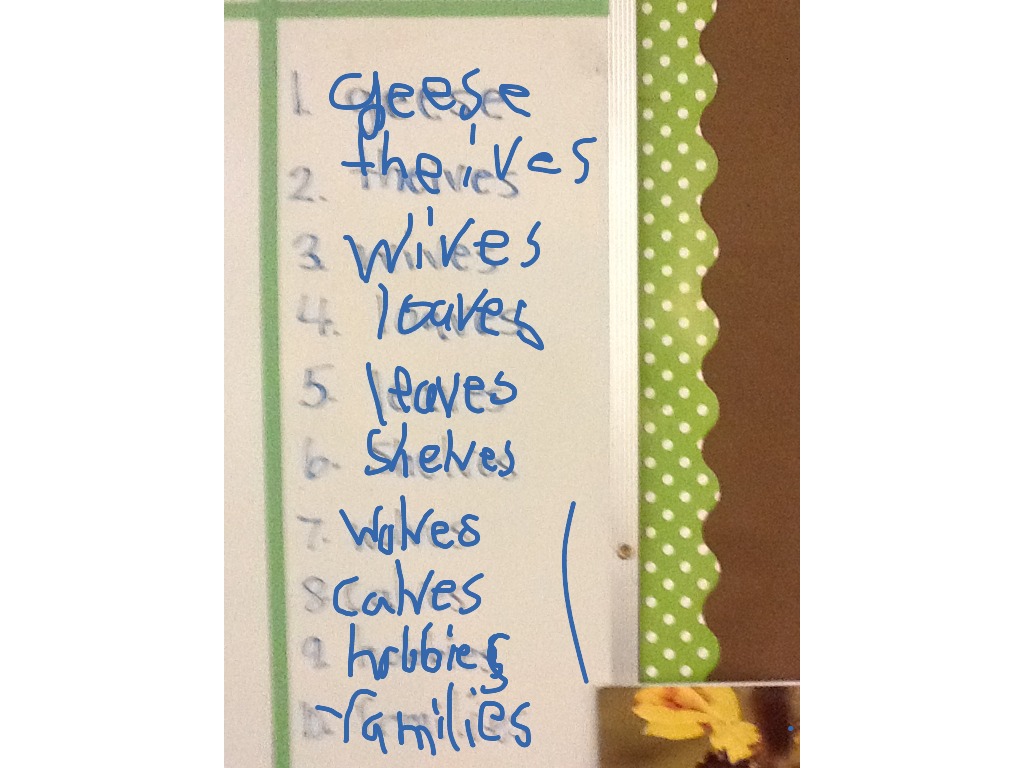 1. geese
2. theives
3. wives
4. loaves
5. leaves
6. shelves
7. wolves
8. calves
9. hobbies
10. families